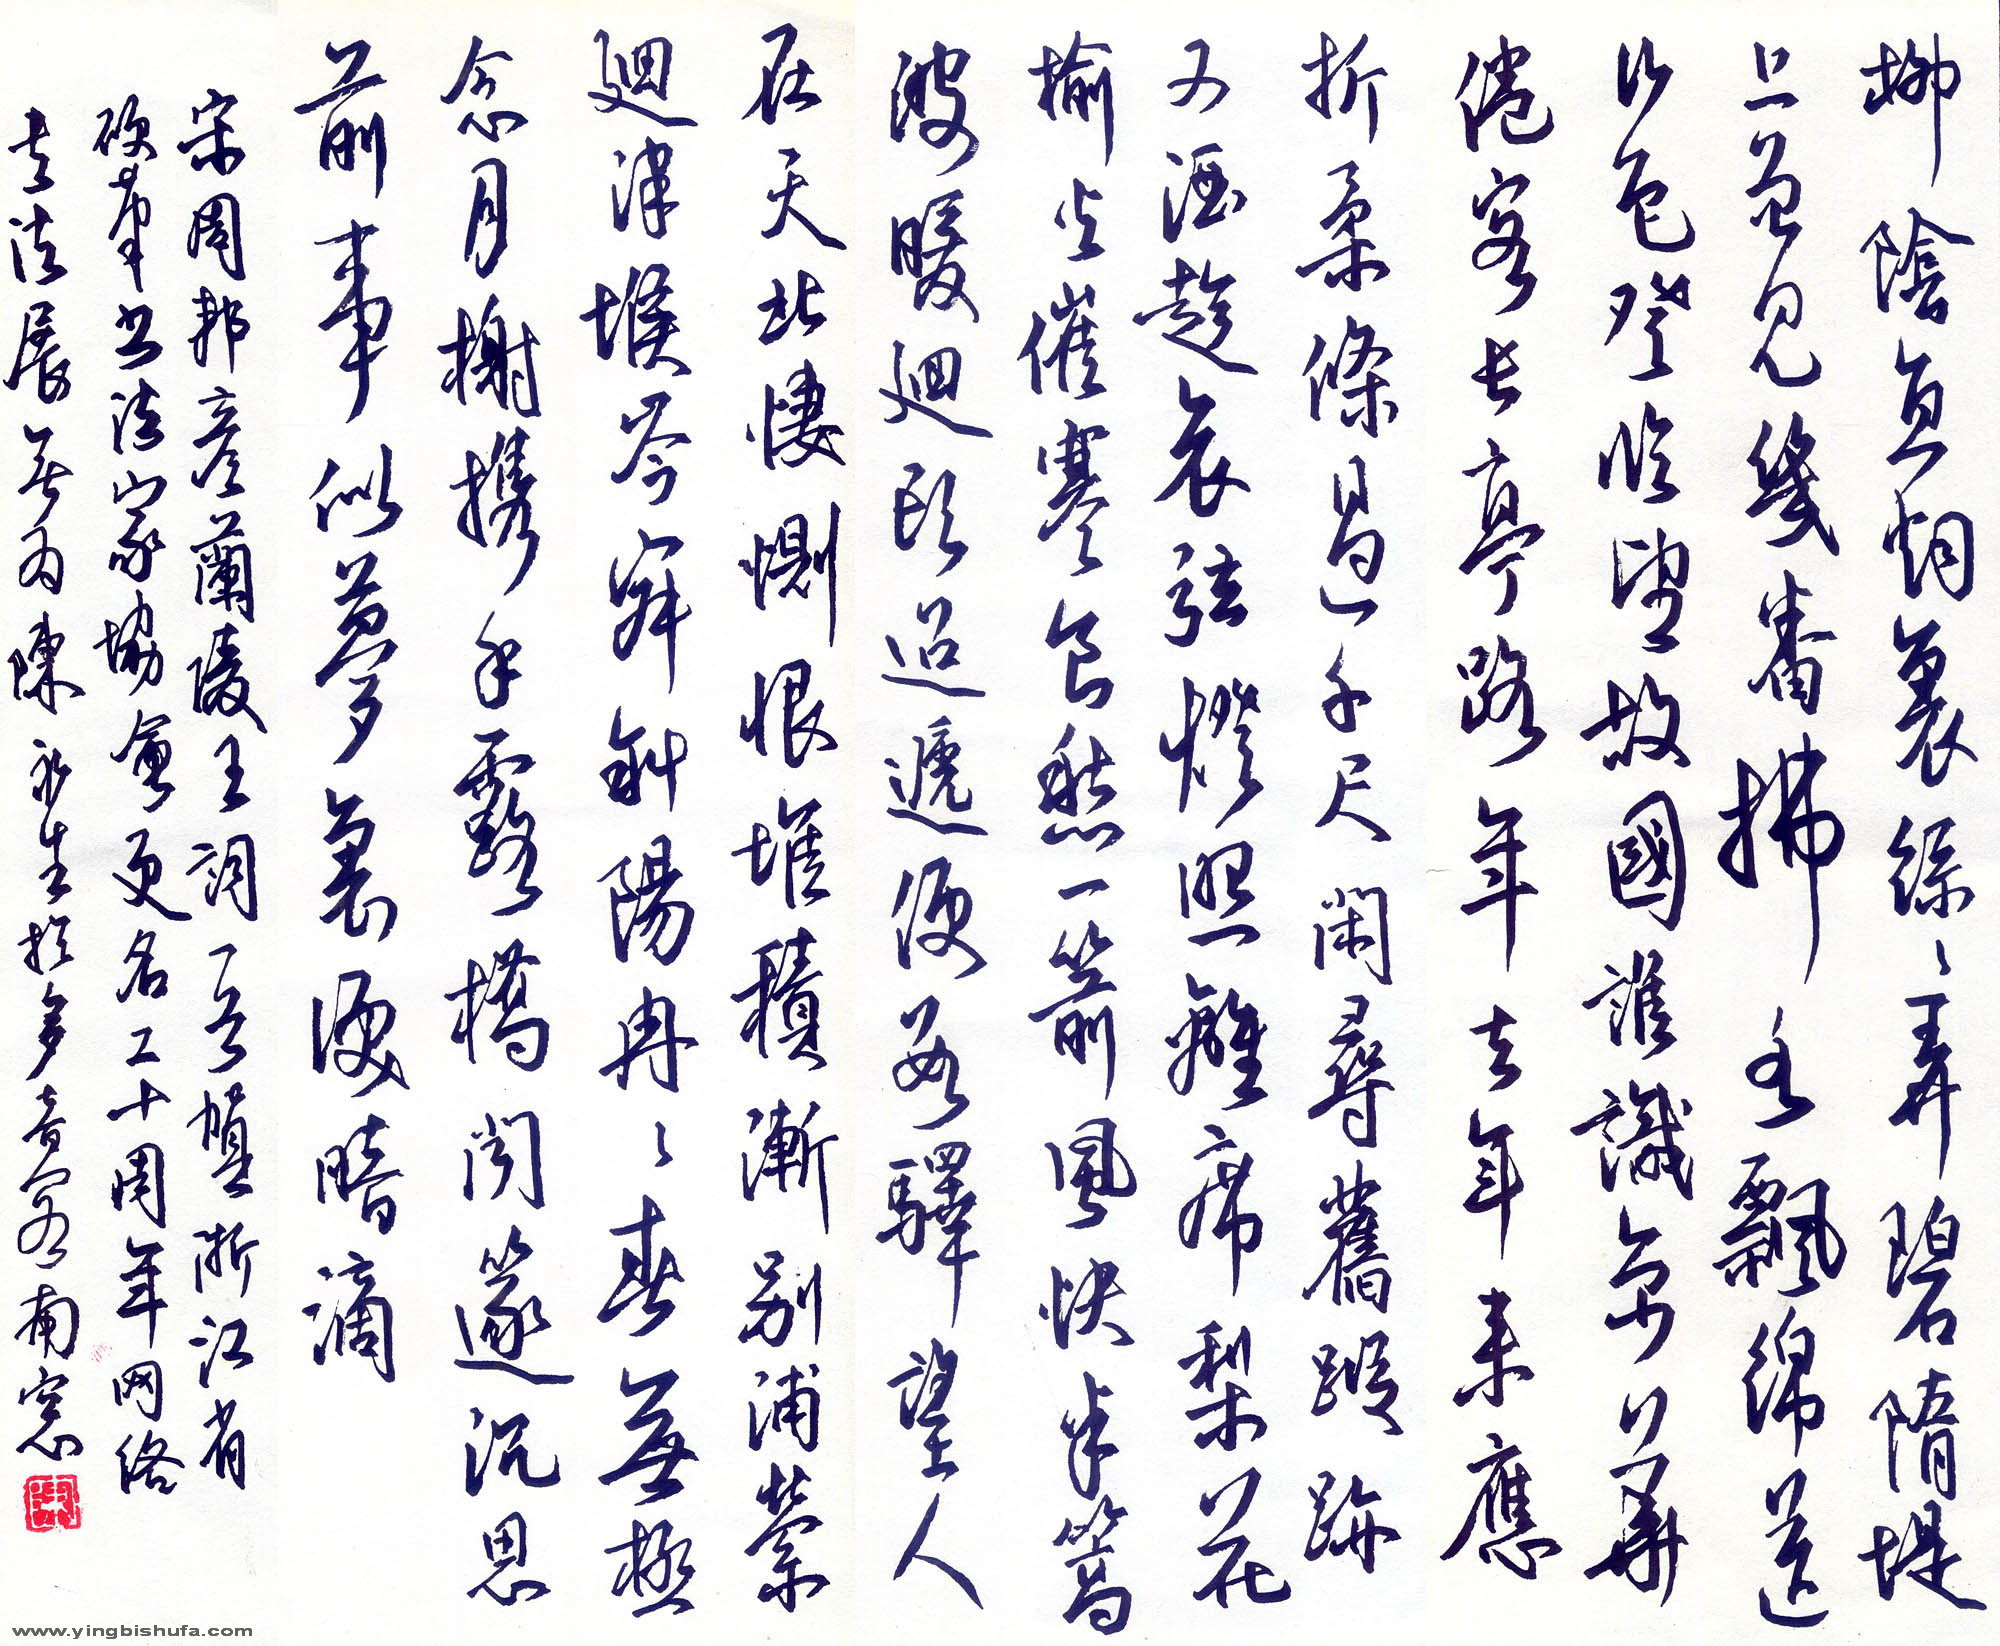 柳陰直烟裏絲々弄碧隋堤
上曾見幾番拂水飄綿送
行色登臨望故國誰識京華
倦客長亭路年去年來應
折柔條過千尺閑尋舊蹤跡
又酒趁哀弦燈照離席梨花
榆火催寒食愁一箭風快半篙
波暖迴頭迢遞便數驛望人
在天北悽惻恨堆積漸别浦縈
迴津堠岑寂斜陽冉々春無極
念月榭携手露橋聞遂沉思
前事似夢裏淚暗滴
宋周邦彦蘭陵王詞一首賀浙江省
硬筆書法家協會更名二十周年网络
書法展陳永生於南窓
www.yingbishufa.com